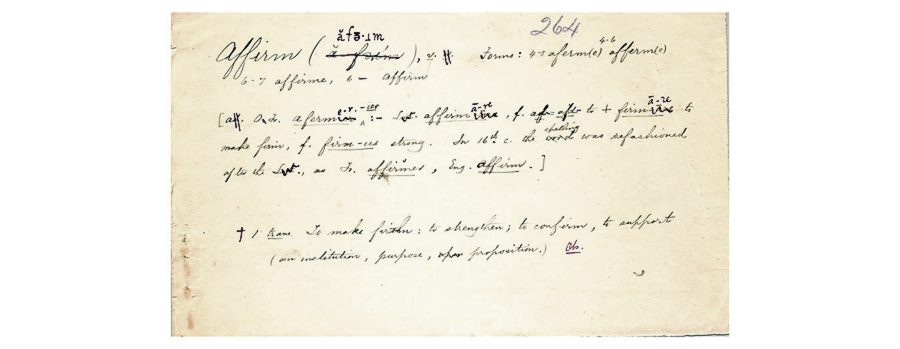 264
ăfɜ·ɹm
Affirm ( ), v. Forms: 4-5 aferm(e) 4-6 afferm(e)
6-7 affirme, 6- Affirm
[aff. O.Fr. afermer, -ier :- Lat. affirmāre, f. af- = ad- to + firmāre to
make firm, f. firm-us strong. In 16th c. the spelling was refashioned
after the Lat., as Fr. affirmer, Eng. affirm.]
† 1. trans. To make firm; to strengthen; to confirm, to support
(an institution, purpose, or proposition.) Obs.